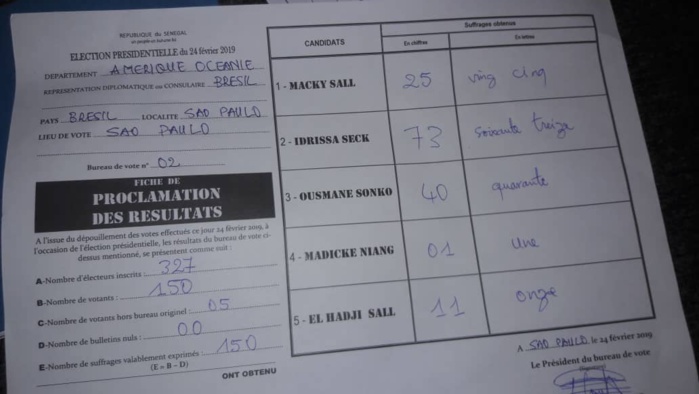 REPUBLIQUE du SENEGAL
ELECTION PRESIDENTIELLE du 24 février 2019
DEPARTEMENT AMERIQUE OCEANIE
REPRESENTATION DIPLOMATIQUE ou CONSULAIRE BRESIL
PAYS BRESIL LOCALITE SAO PAULO
LIEU DE VOTE SAO PAULO
Bureau de vote n° 02
FICHE DE
PROCLAMATION
DES RESULTATS
A l'issue du dépouillement des votes effectués ce jour 24 février 2019, à
l'occasion de l'élection présidentielle, les résultats du bureau de vote ci-
dessus mentionné, se présentent comme suit :
A-Nombre d'électeurs inscrits : 327
B-Nombre de votants : 150
C-Nombre de votants hors bureau originel : 05
D-Nombre de bulletins nuls : 00
E-Nombre de suffrages valablement exprimés : 150
(E = B - D)
ONT OBTENU
CANDIDATS
Suffrages obtenus
En chiffre
En lettres
1 - MACKY SALL 25 ving cinq
2 - IDRISSA SECK 73 soixante treize
3 - OUSMANE SONKO 40 quarante
4 - MADICKE NIANG 01 une
5 - EL HADJI SALL 11 onze
A SAO PAULO, le 24 février 2019
Le Président du bureau de vote
(Signature)